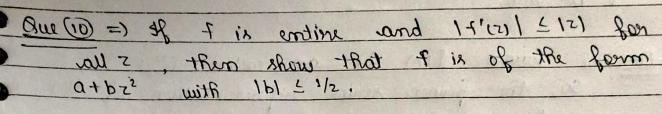 Que (10) => If f is entire and |f'(z)| ≤ |z| for
all z, then show that f is of the form
a+bz² with |b| ≤ 1/2.